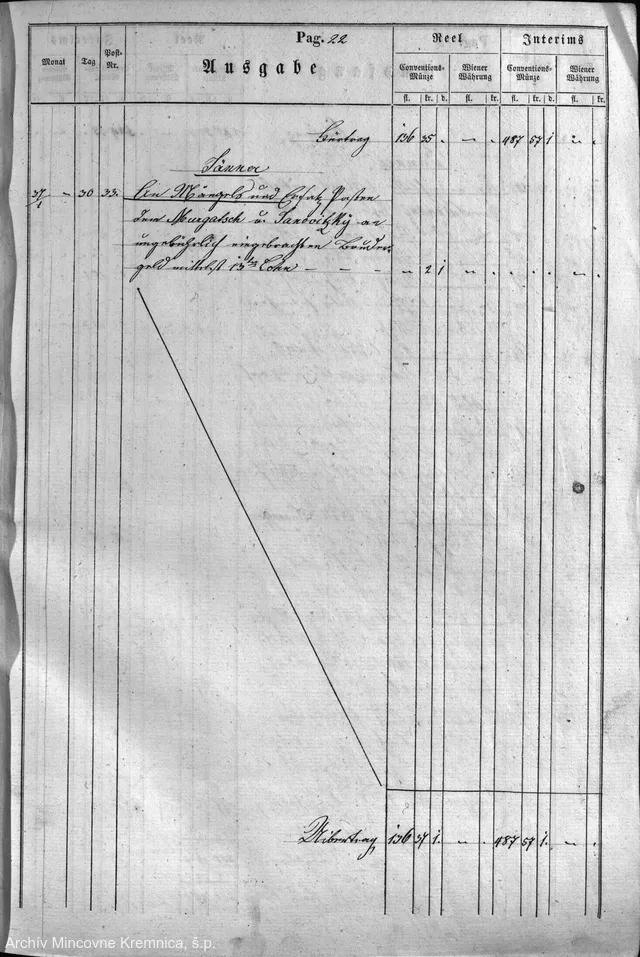 Pag. 22
Ausgabe
Reel
Interims
Monat
Tag
Post-Nr.
Conventions-Münze
Wiener Währung
Conventions-Münze
Wiener Währung
fl. kr. d. fl. kr. fl. kr. d. fl. kr.
Uibertrag 136 35 . – – 487 57 1 – .
Jänner
– 30 33. An Mängels und Ersatz Posten
dem Murgatsch u. Janovitzky an
ungebührlich eingebrachten Bruder-
geld mittelst 13ter Lohn – – – – 2 1
Uibertrag 136 37 1. – – 487 57 1. – .
Archív Mincovne Kremnica, š.p.